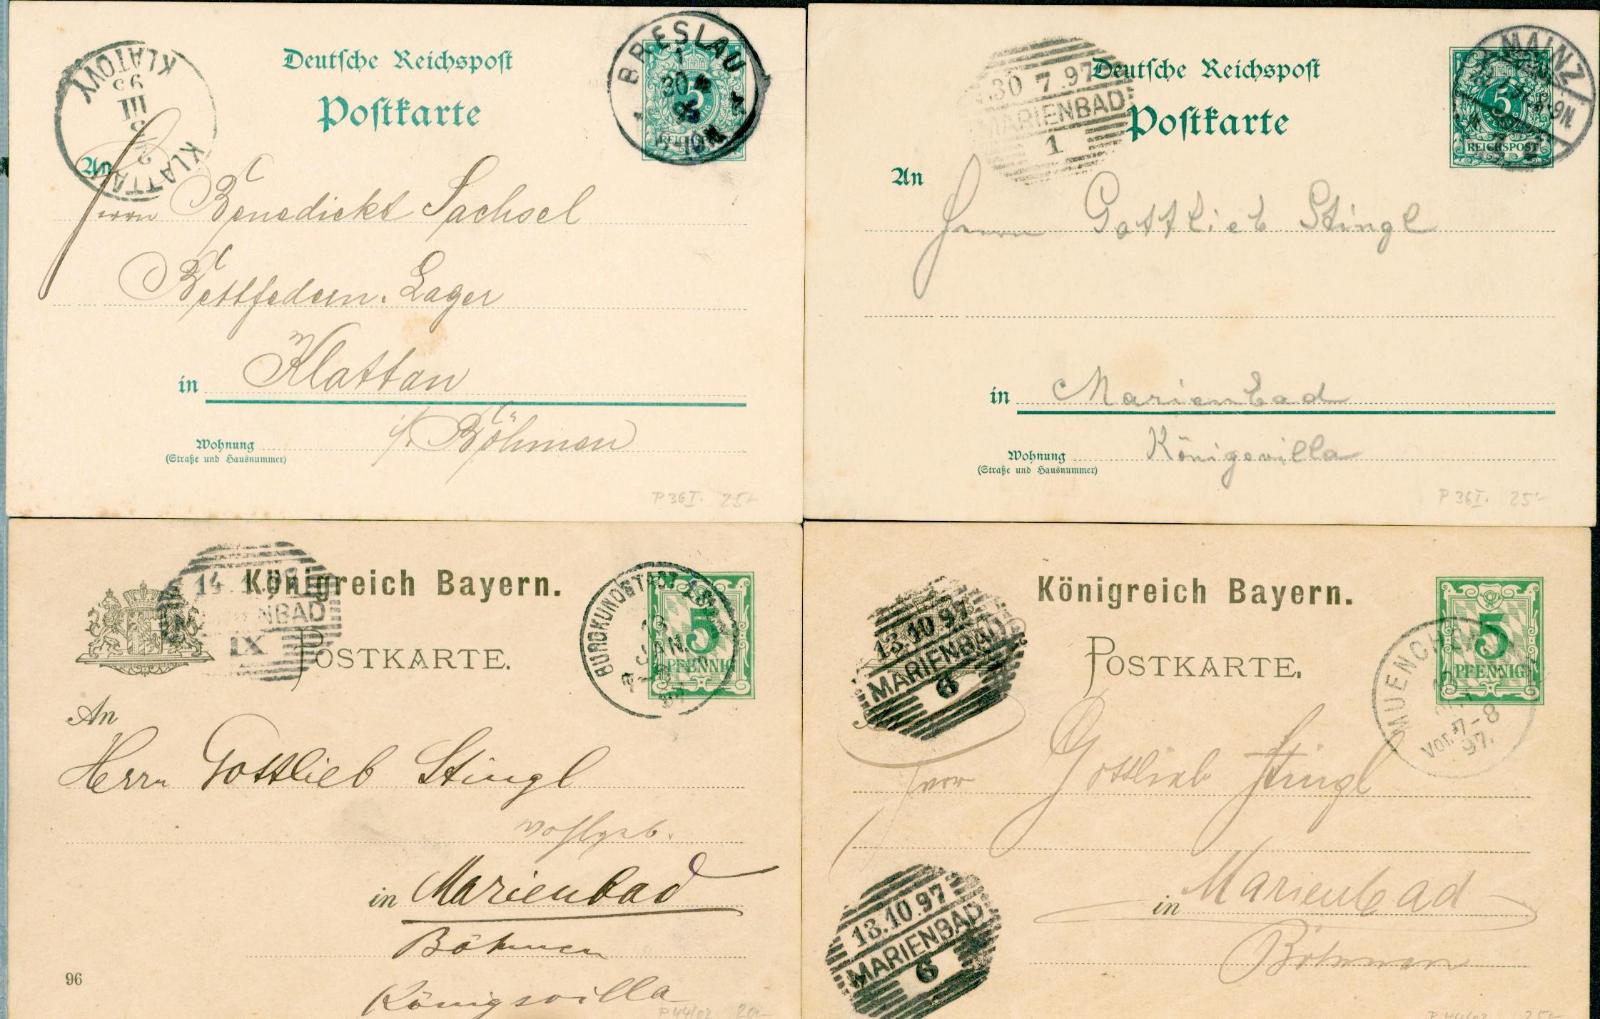 Deutsche Reichspost
Postkarte
KLATOVY
KLATTAU
BRESLAU
REICHSPOST
An
Herrn Benedickt Sachsel
Bettfedern. Lager
in Klattau
i/. Böhmen
Wohnung
(Straße und Hausnummer)
P 36 I. 25.-
30 7.97
MARIENBAD
1
Deutsche Reichspost
Postkarte
MAINZ
5
REICHSPOST
An
Herrn Gottlieb Stingl
in Marienbad
Wohnung Königsvilla
(Straße und Hausnummer)
P 36 I. 25.-
Königreich Bayern.
POSTKARTE.
IX
BURGKUNDSTADT
JAN.
5
PFENNIG
An
Herrn Gottlieb Stingl
wohlgeb.
in Marienbad
Böhmen
Königsvilla
96
P 44/02
Königreich Bayern.
POSTKARTE.
13.10.97
MARIENBAD
6
5
PFENNIG
MUENCHEN
Vor. 7-8
97.
Herr Gottlieb Stingl
in Marienbad
Böhmen
13.10.97
MARIENBAD
6